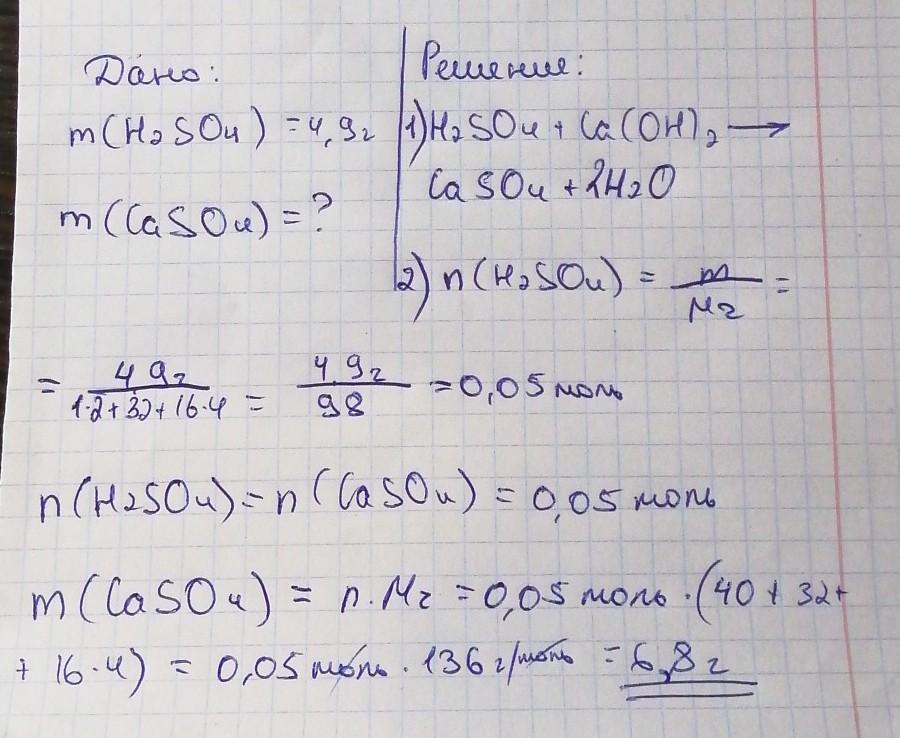 Дано:
m(H2SO4) = 4,9г
m(CaSO4) = ?
Решение:
1) H2SO4 + Ca(OH)2 ⟶
CaSO4 + 2H2O
2) n(H2SO4) = m/Mг =
= 4,9г/1·2+32+16·4 = 4,9г/98 = 0,05 моль
n(H2SO4) = n(CaSO4) = 0,05 моль
m(CaSO4) = n·Mг = 0,05 моль·(40 + 32 +
+ 16·4) = 0,05 моль · 136 г/моль = 6,8 г